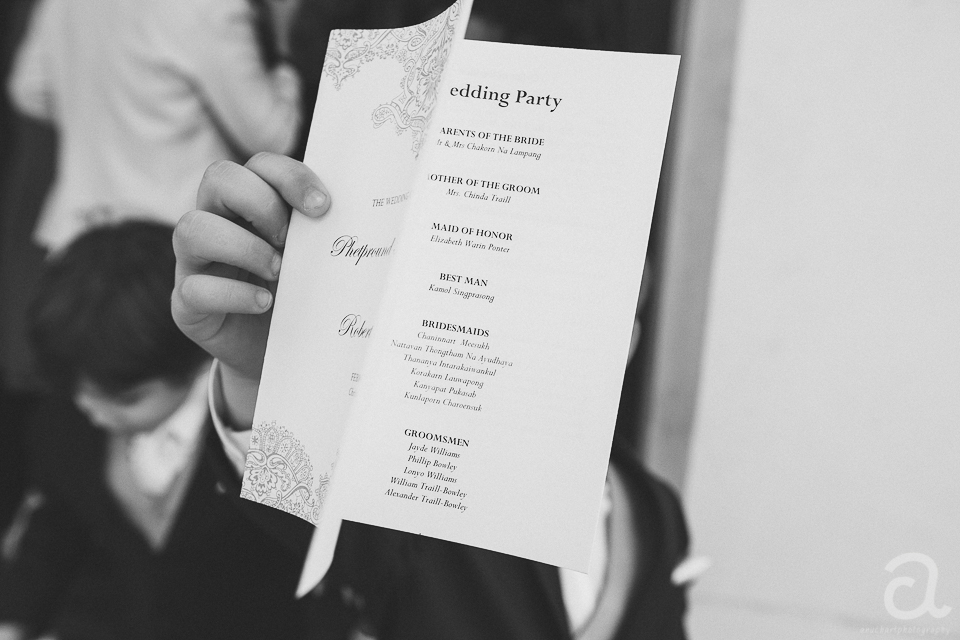 THE WEDDING
Phetpround
Robert
edding Party
ARENTS OF THE BRIDE
r & Mrs Chakorn Na Lampang
OTHER OF THE GROOM
Mrs. Chinda Traill
MAID OF HONOR
Elizabeth Watin Ponter
BEST MAN
Kamol Singprasong
BRIDESMAIDS
Chaninnart Meesukh
Nattavan Thongtham Na Ayudhava
Thananya Intarakaiwankul
Korakarn Lauwapong
Kanyapat Pukasah
Kunlaporn Charoensuk
GROOMSMEN
Jayde Williams
Phillip Bowley
Lonyo Williams
William Traill-Bowley
Alexander Traill-Bowley
a
aeuckertphotography